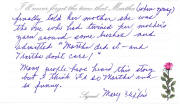 I'll never forget the time that Martha (when young)
finally told her mother she was
the one who had twined her mother's
yarn around some bushes and
admitted "Martha did it — and
Martha don't care!"
Many people have heard this story
but I think it's so Martha and
so funny.
Signed Mary